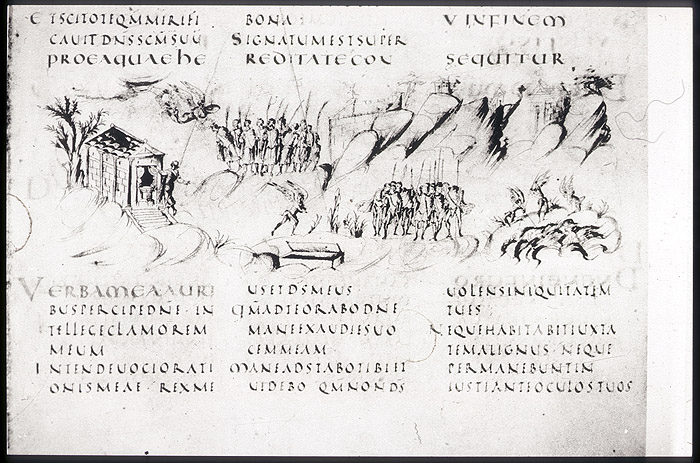 ETSCITOTEQMMIRIFI
CAUITDNSSCMSUU
BONA
SIGNATUMESTSUPER
VINFINEM
PROEAQUAEHE
REDITATECON
SEQUITUR
VERBAMEAAURI
BUSPERCIPEDNE · IN
TELLEGECLAMOREM
MEUM
INTENDEUOCIORATI
ONISMEAE · REXME
USETDSMEUS
QMADTEORABODNE
MANEEXAUDIESUO
CEMMEAM ·
MANEADSTABOTIBIET
UIDEBO QMNONDS
UOLENSINIQUITATEM
TUES
NEQUEHABITABITIUXTA
TEMALIGNUS · NEQUE
PERMANEBUNTIN
IUSTIANTEOCULOSTUOS